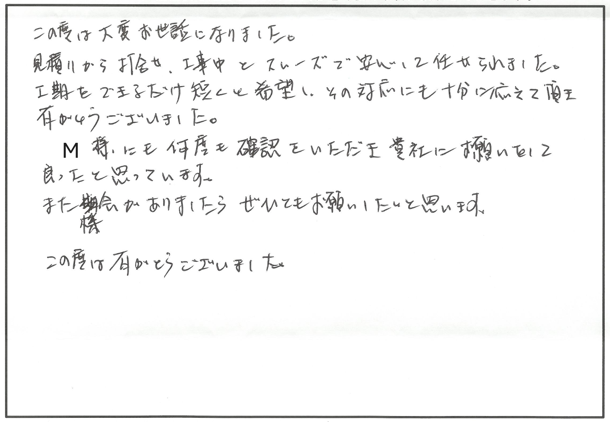 この度は大変お世話になりました。
見積りから打合せ、工事中とスムーズで安心して任せられました。
工期もできるだけ短くと希望し、その対応にも十分に応えて頂き
有がとうございました。
M 様にも何度も確認をいただき貴社にお願いをして
良ったと思っています。
また機会がありましたらぜひともお願いしたいと思います。
機
この度は有がとうございました。